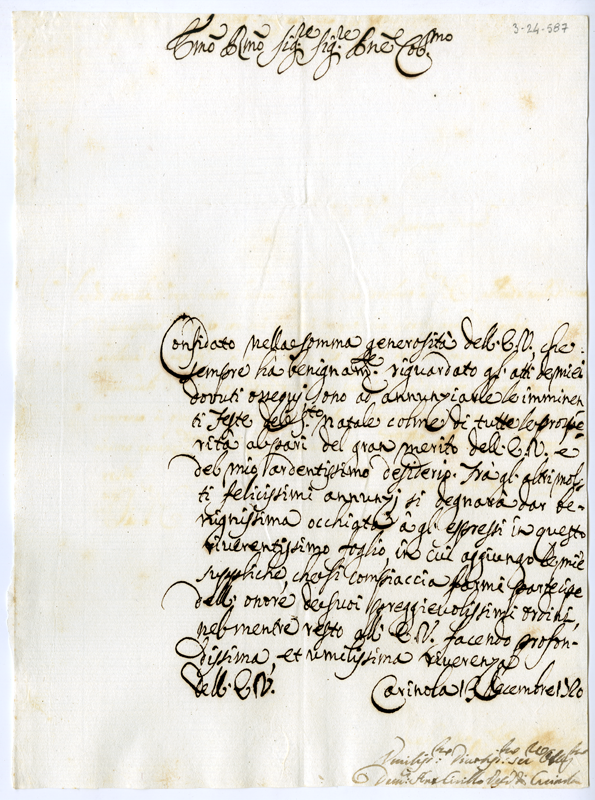 3-24-587
Em̃o Rm̃o Sig.re Sig.re Pñe Col.mo
Confidato nella somma generosità dell' E.V. che
sempre hà benignam.te riguardato gl' atti de miei
dovuti ossequj sono ad annunziarle le imminen
ti Feste del S.to Natale colme di tutte le prospe
rità al pari del gran merito dell' E.V. e
del mio ardentissimo desiderio. Frà gl' altri mol
ti felicissimi annunzj si degnarà dar be-
nignissima occhiata à gl' espressi in questo
riverentissimo foglio, in cui aggiungo le mie
suppliche, che si compiaccia farmi partecipe
dell' onore de suoi preggievolissimi ordini,
nel mentre resto all' E.V. facendo profon-
dissima, et umilissima riverenza
Dell' E.V. Carinola 13 Decembre 1720
Umiliss.mo Divotiss.mo